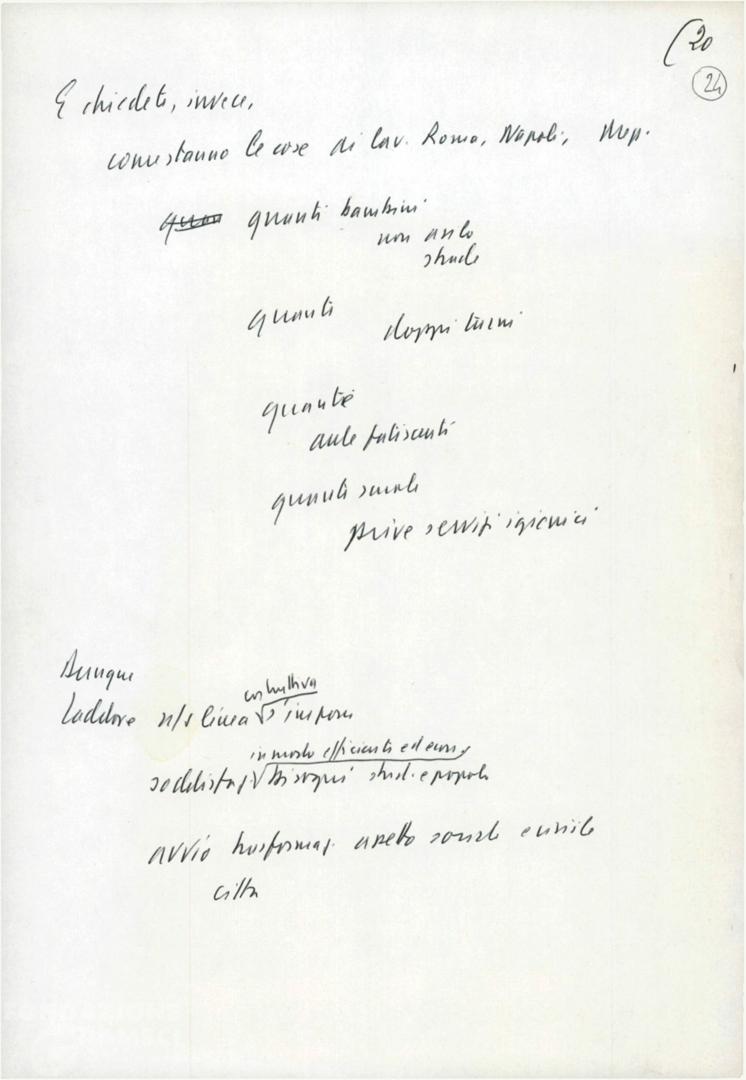 (20
24
E chiedete, invece,
come stanno le cose di lav. Roma, Napoli,
quan quanti bambini
non asilo
quanti doppi turni
quante
aule fatiscenti
quante scuole
prive servizi igienici
Dunque
costruttiva
Laddove n/s linea s'impone
in modo efficiente ed
bisogni stud. e popolo
avvio trasformaz. assetto sociale e civile
città